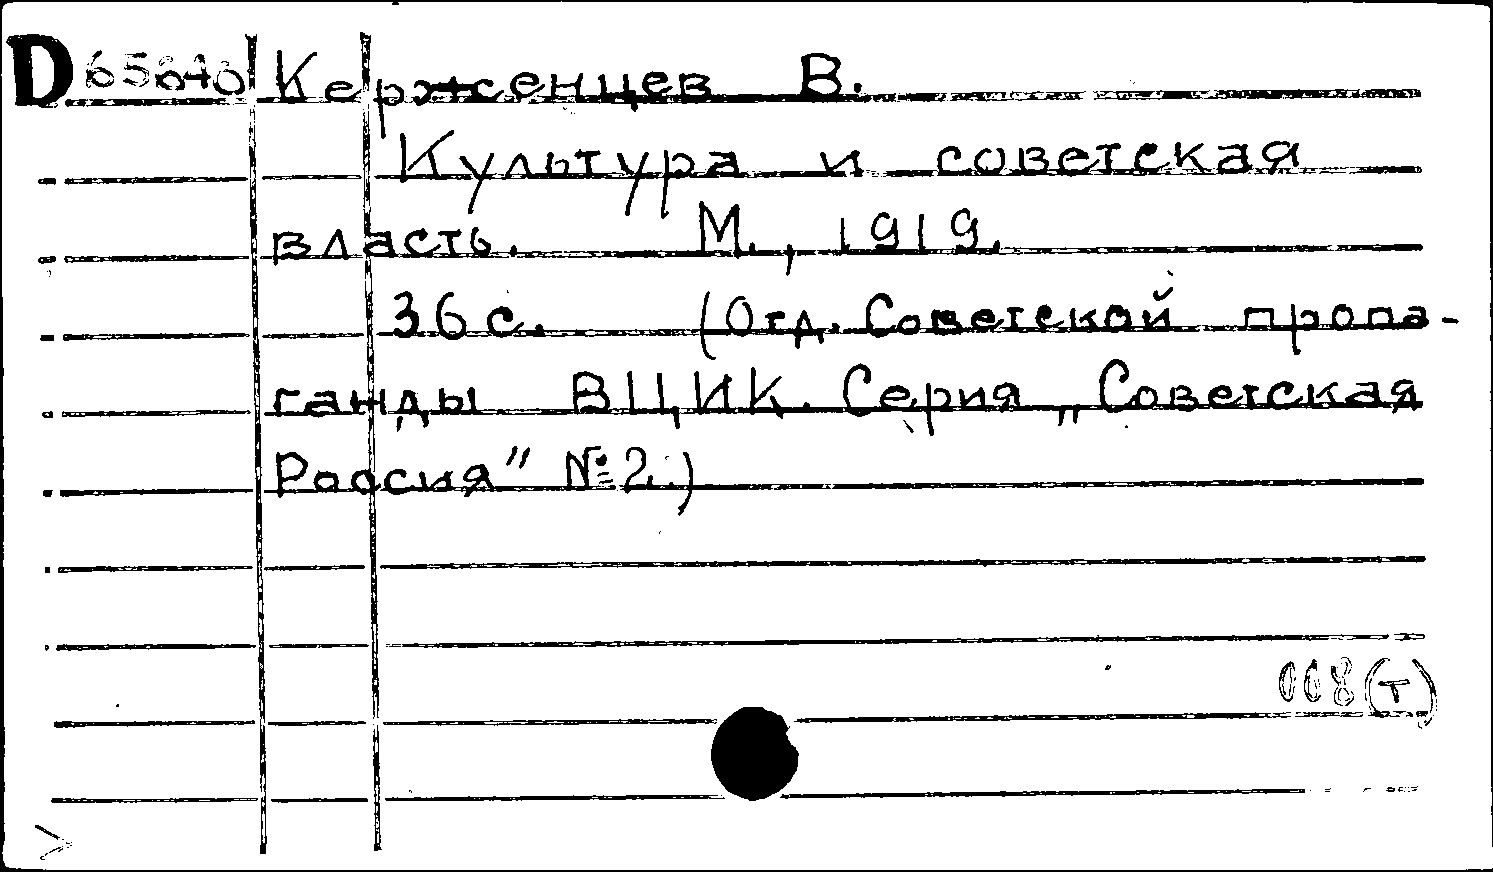 D Керженцев В.
Культура и советская
власть. М., 1919.
36 с. (Отд. Советской пропа-
ганды ВЦИК. Серия „Советская
Россия" №2.)
008(т)